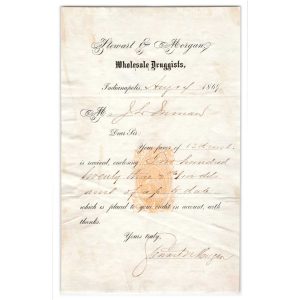 Stewart & Morgan,
Wholesale Druggists,
Indianapolis, Aug 4 186
M J. S. Inman
Dear Sir
Your favor of 13th inst.
is received, enclosing Two hundred
twenty three
amt of a/c to date
which is placed to your credit in account, with
thanks.
Yours truly,
Stewart & Morgan